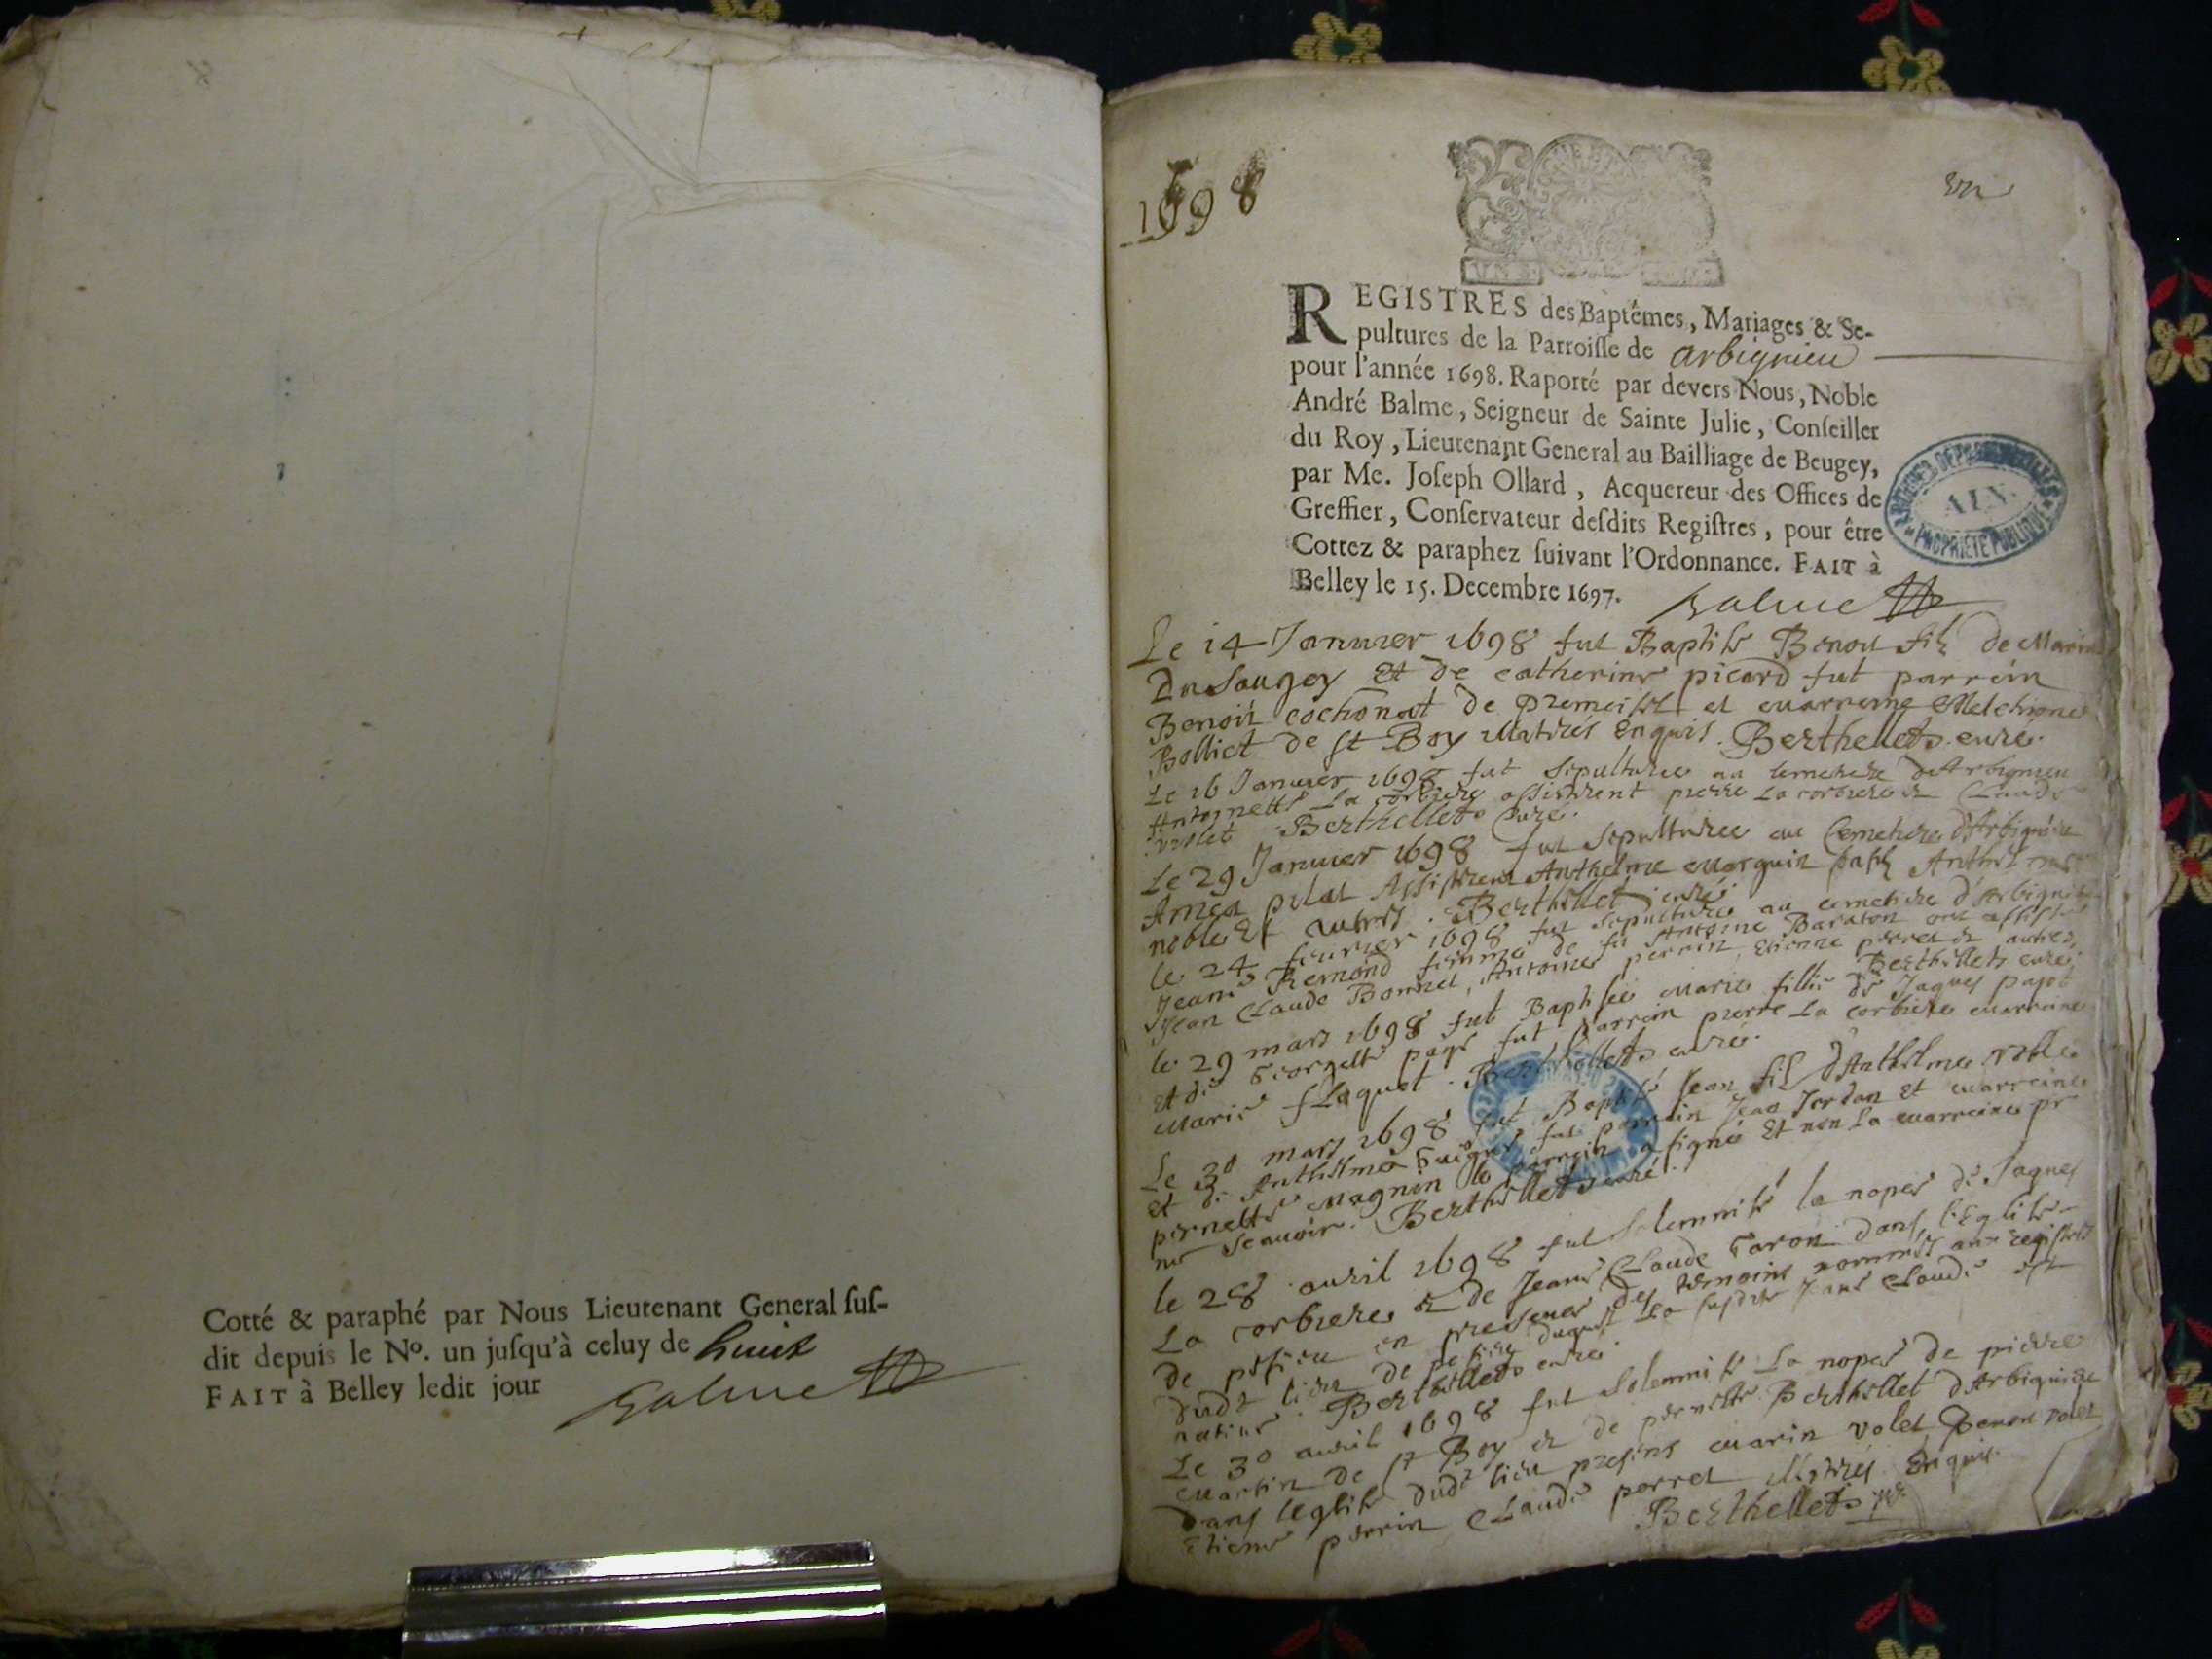 Cotté & paraphé par Nous Lieutenant General ſuſ-
dit depuis le Nº. un juſqu'à celuy de huict
FAIT à Belley ledit jour
Balme
1698
un
REGISTRES des Baptêmes, Mariages & Se-
pultures de la Parroiſſe de Arbignieu
pour l'année 1698. Raporté par devers Nous, Noble
André Balme, Seigneur de Sainte Julie, Conſeiller
du Roy, Lieutenant General au Bailliage de Beugey,
par Me. Joſeph Ollard, Acquereur des Offices de
Greffier, Conſervateur deſdits Regiſtres, pour être
Cottez & paraphez ſuivant l'Ordonnance. FAIT à
Belley le 15. Decembre 1697.
Balme
ARCHIVES DEPARTEMENTALES
AIN
PROPRIETE PUBLIQUE
Le 14 Januier 1698 fut Baptisé Benoit fils de Marin
Du Sougey et de catherine picard fut parrein
Benoit cochonat de et marreine
Bolliet de st Boy Enquis. Berthellet curé.
Le 16 Januier 1698 fut Sepulturée au Cemetiere d'Arbignieu
Antoinette La corbiere assistirent pierre La corbiere et Claude
Berthellet Curé.
Le 29 Januier 1698 fut Sepulturée au Cemetiere d'Arbignieu
pilat Assistirent Anthelme marguin Anthelme
noble Et autres. Berthellet curé.
le 24 feurier 1698 fut Sepulturée au cemetiere d'Arbignieu
Jeane Remond femme de fu Antoine Baraton ont assisté
Jean Claude Bonnet, Antoine perrin, Etienne perret et autres,
Berthellet curé.
le 29 mars 1698 fut Baptisée marie fille de Jaques pajot
et de Georgette page fut parrein pierre La corbiere marreine
marie flaquet. Berthellet curé.
Le 30 mars 1698 fut Baptisé Jean fils d'Anthelme noble
et de Anthelma fut parrein Jean Jordan et marreine
pernette magnin le parrein a signé Et non la marreine pr
ne Scauoir. Berthellet curé.
le 28 auril 1698 fut Solemnisé la noper de Jaques
La corbiere et de Jeane Claude Caron dans l'Eglise
de en presence des temoins nommés aux registres
dudt lieu de La susdite Jane Claude est
natiue. Berthellet curé.
Le 30 auril 1698 fut Solemnisé La noper de pierre
martin de st Boy et de pernette Berthellet d'Arbignieu
Dans l'Eglise dudt lieu presens marin volet, Benoit volet
Etiene perrin Claude perret Enquis.
Berthellet